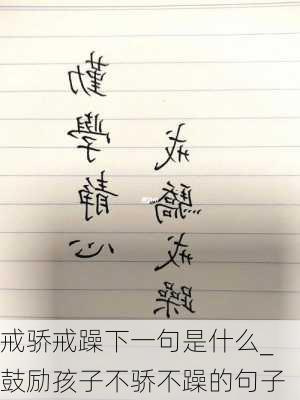 勤學靜心
戒驕戒躁
戒骄戒躁下一句是什么_
鼓励孩子不骄不躁的句子